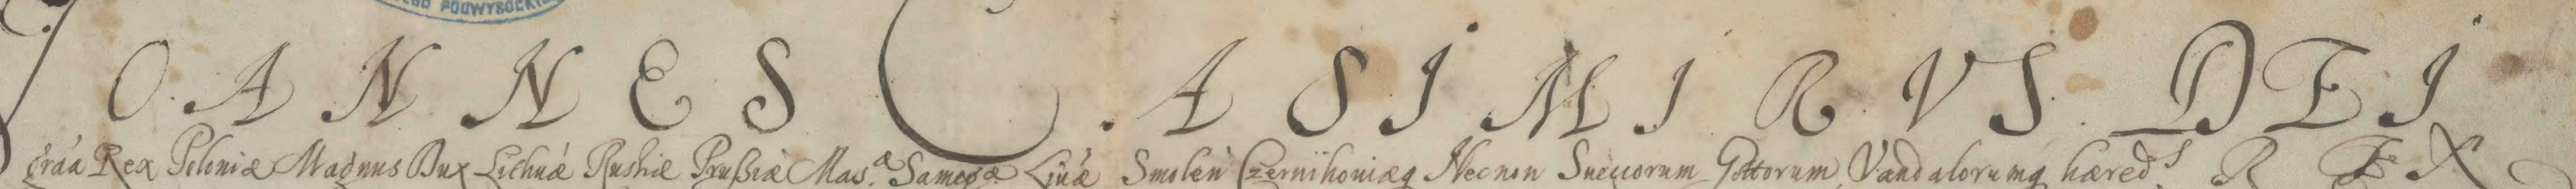 POUWYSOCKI
JOANNES CASIMIRVS DEI
Gráa Rex Poloniæ Magnus Dux Lithuá Rushiæ Prußiæ Mas.æ Samog.æ Liuá Smolen Czernihoniæq Necnon Suecorum Gottorum Vandalorumq hæred.s REX